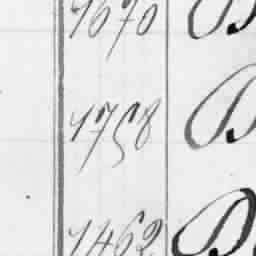 1670 B
1758 B
1462 B